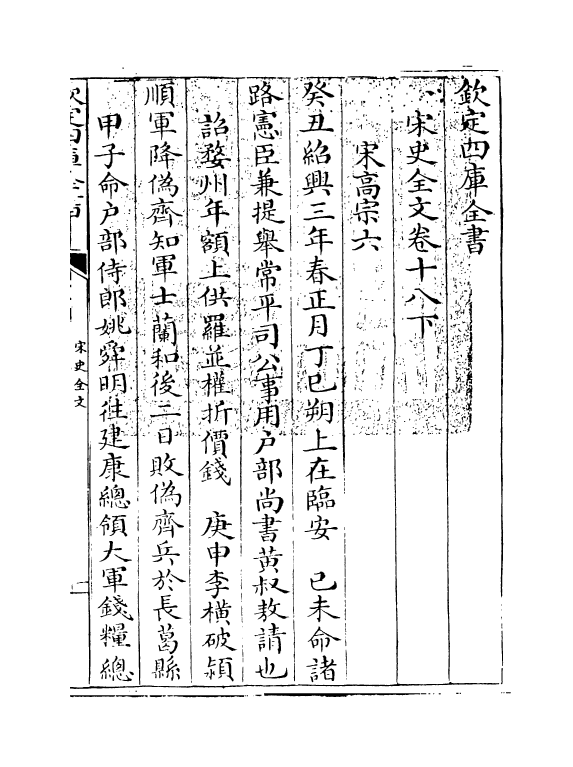 欽定四庫全書
宋史全文卷十八下
宋高宗六
癸丑紹興三年春正月丁巳朔上在臨安　己未命諸
路憲臣兼提舉常平司公事用户部尚書黄叔敖請也
詔婺州年額上供羅並權折價錢　庚申李横破潁
順軍降偽齊知軍士蘭和後二日敗偽齊兵於長葛縣
甲子命户部侍郎姚舜明往建康總領大軍錢糧總
欽定四庫全書
宋史全文